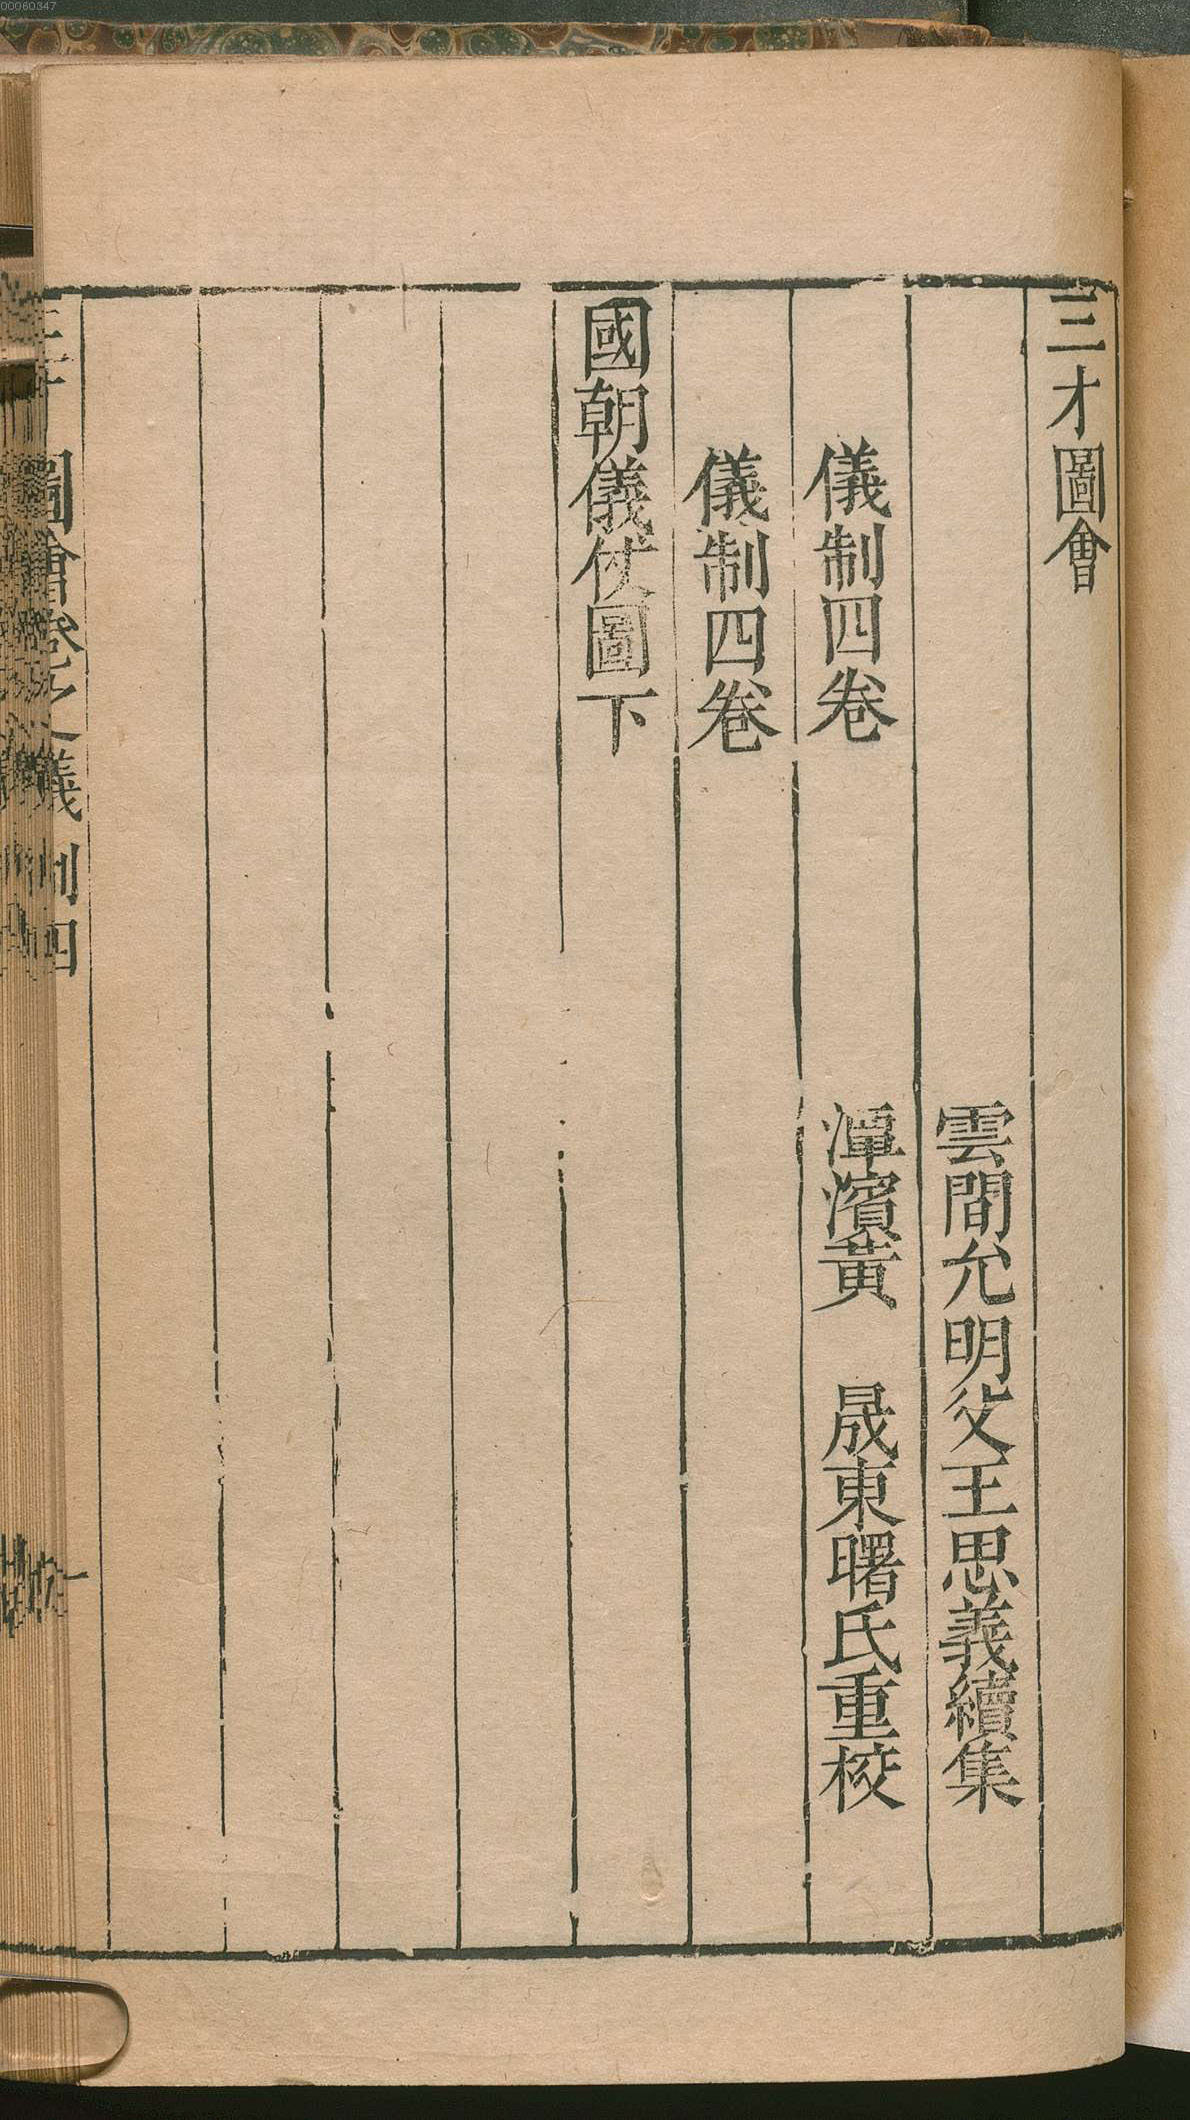 三才圖會
雲間允明父王思義續集
儀制四卷 潭濱黃 晟東曙氏重校
儀制四卷
國朝儀仗圖下
圖會卷之儀制四
一
00060347